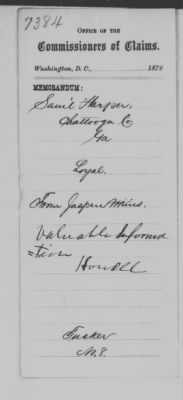 7384
OFFICE OF THE
Commissioners of Claims.
Washington, D. C., 187
MEMORANDUM:
Saml Harper,
Chattooga Co
Ga
Loyal.
From Jasper
Valuable Informa
=tion
Howell
Tucker